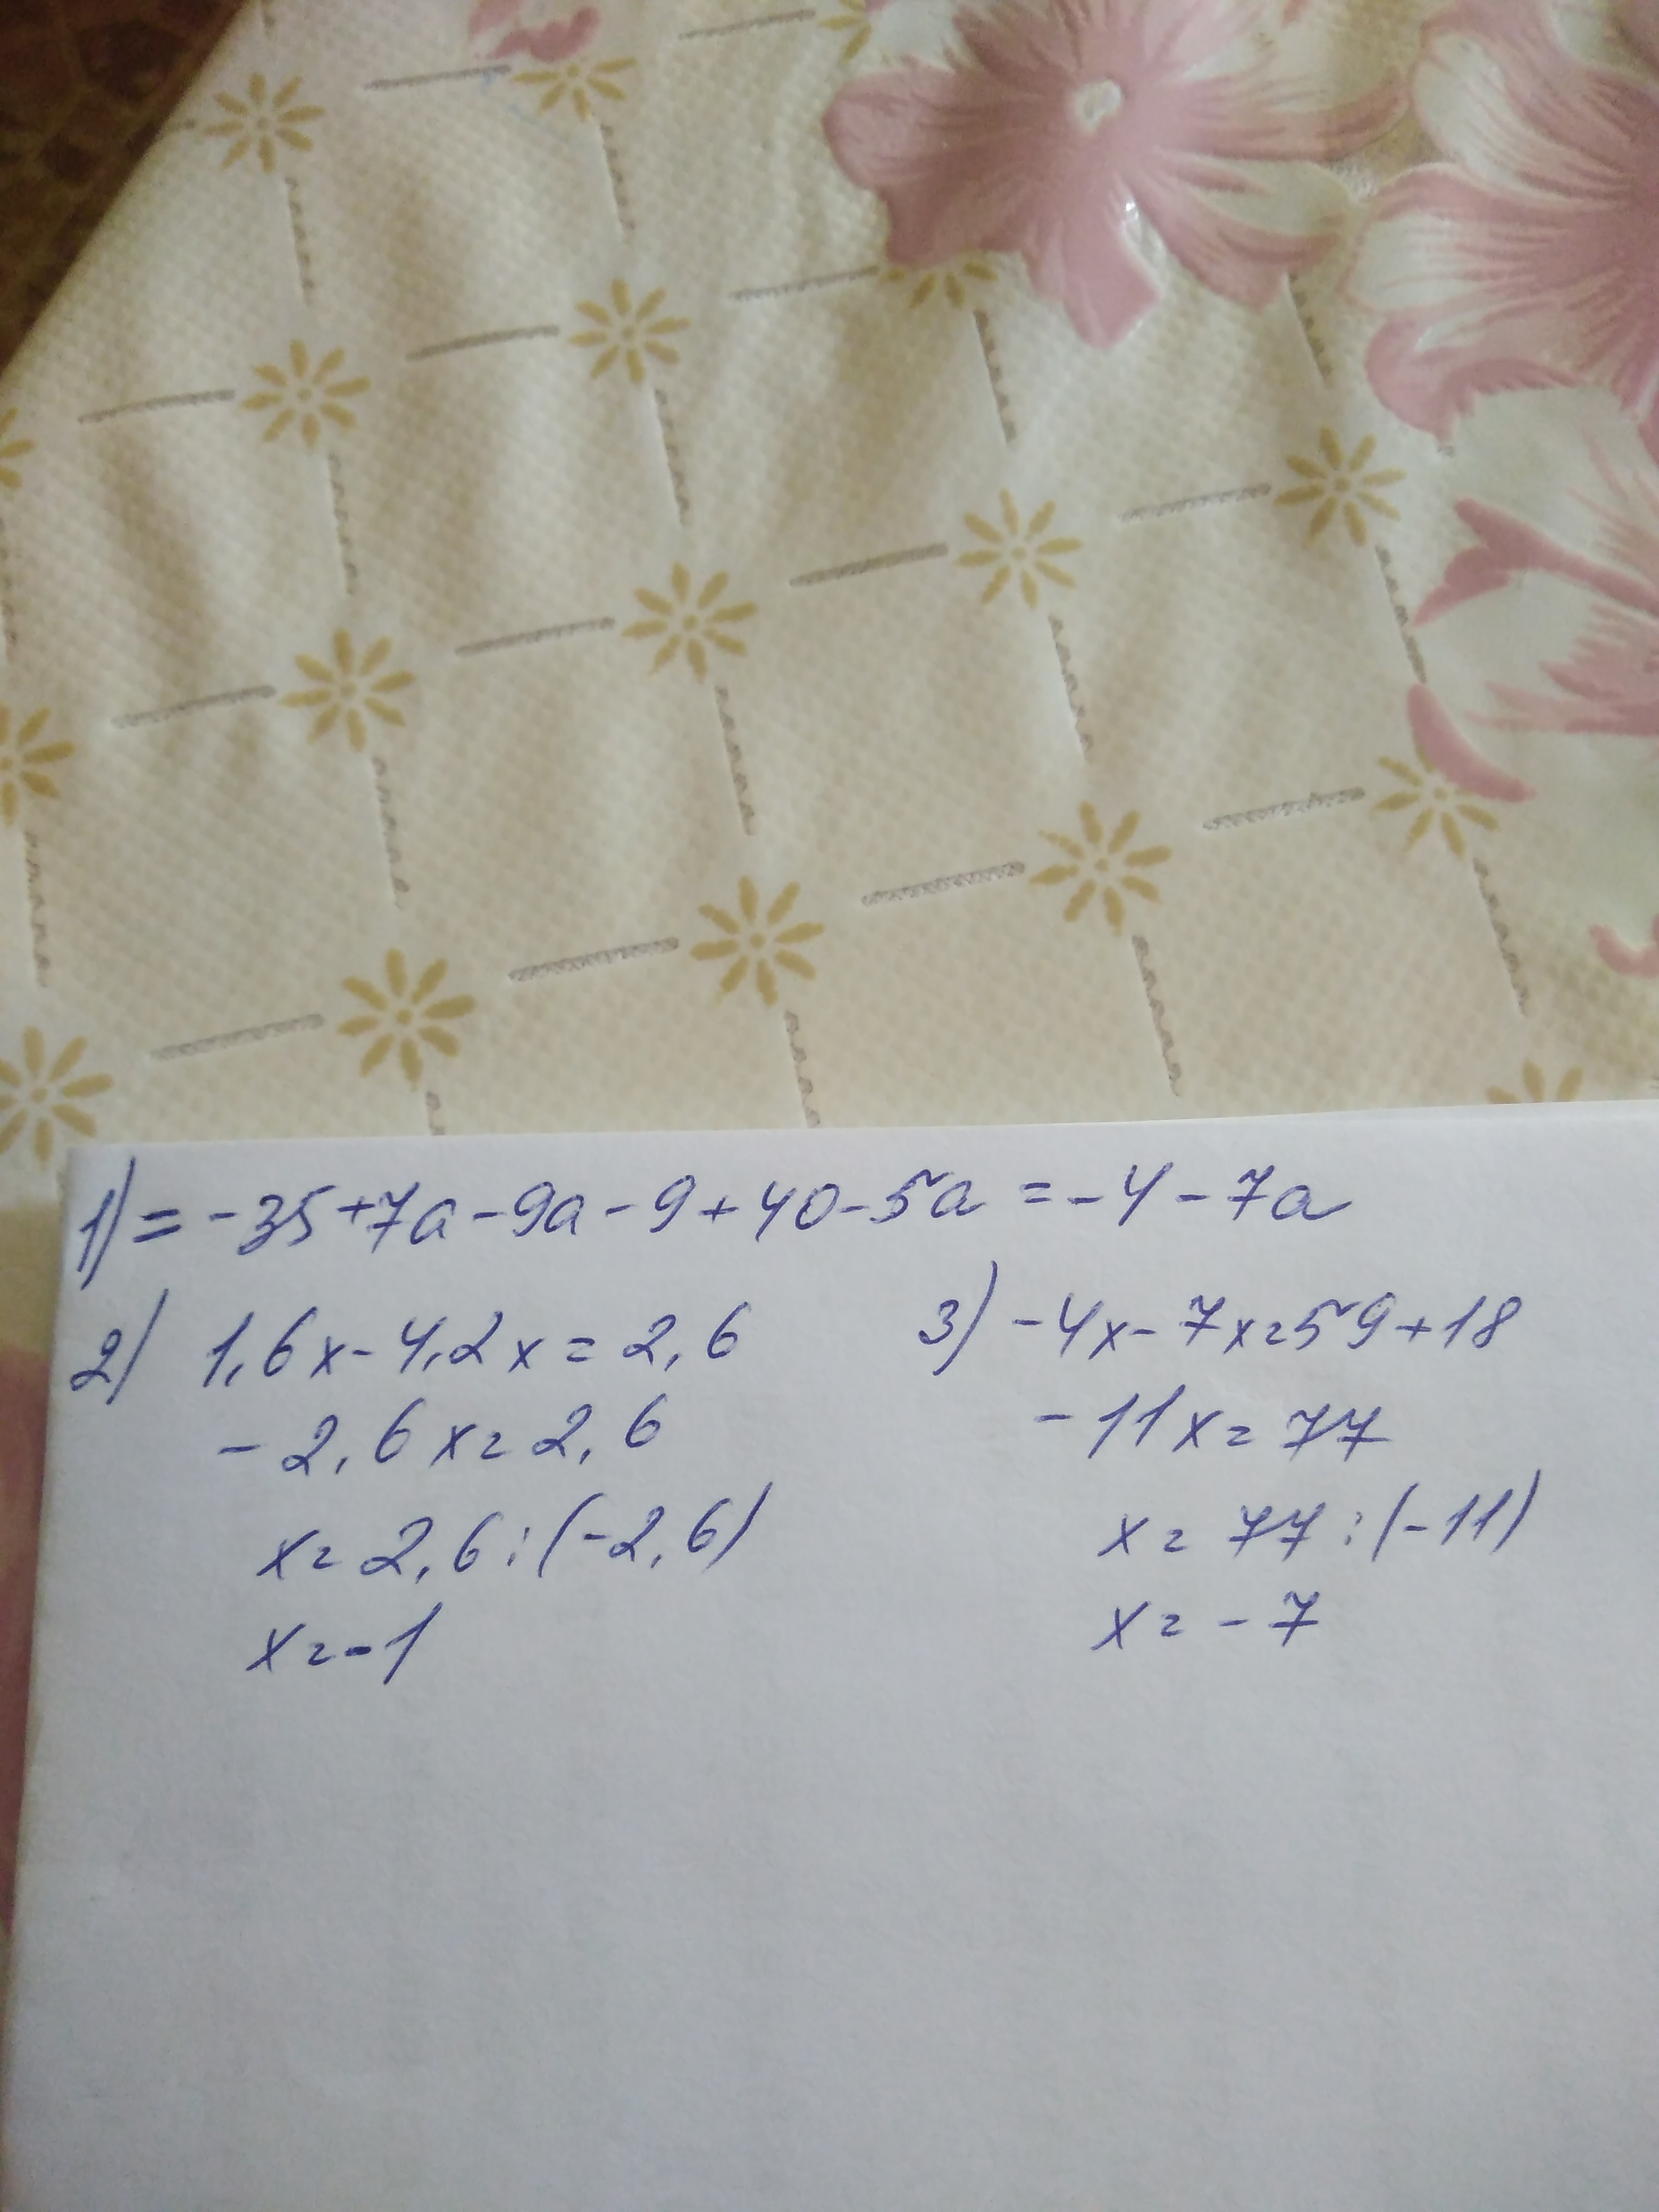 1) = -35+7a-9a-9+40-5a = -4-7a
2) 1,6x-4,2x=2,6
-2,6x=2,6
x=2,6:(-2,6)
x=-1
3) -4x-7x=59+18
-11x=77
x=77:(-11)
x=-7